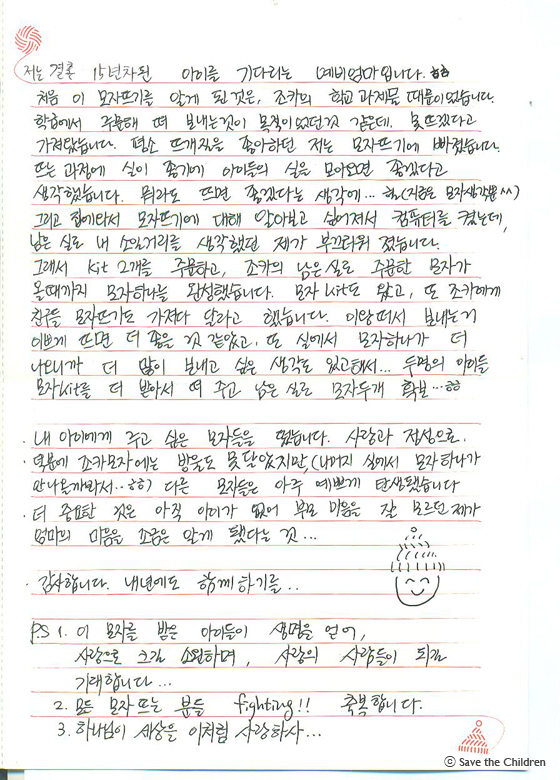 저는 결혼 15년차된 아이를 기다리는 예비엄마입니다. ㅎㅎ
처음 이 모자뜨기를 알게 된 것은, 조카의 학교 과제물 때문이었습니다.
학급에서 주문해 떠 보내는것이 목적이었던것 같은데, 못뜨겠다고
가져왔습니다. 평소 뜨개질을 좋아하던 저는 모자뜨기에 빠졌습니다.
뜨는 과정에 실이 좋기에 아이들의 실을 모아오면 좋겠다고
생각했습니다. 뭐라도 뜨면 좋겠다는 생각에... (지금도 모자생각뿐^^)
그리고 집에와서 모자뜨기에 대해 알아보고 싶어져서 컴퓨터를 켰는데,
남은 실로 내 소일거리를 생각했던 제가 부끄러워 졌습니다.
그래서 Kit 2개를 주문하고, 조카의 남은실로 주문한 모자가
올때까지 모자하나를 완성했습니다. 모자 Kit도 왔고, 또 조카에게
친구들 모자뜨기도 가져다 달라고 했습니다. 이왕 떠서 보내는거
이쁘게 뜨면 더 좋을 것 같았고, 또 실에서 모자하나가 더
나오니까 더 많이 보내고 싶은 생각도 있고해서... 두명의 아이들
모자Kit를 더 받아서 떠 주고 남은 실로 모자두개 확보...ㅎㅎ
· 내 아이에게 주고 싶은 모자들을 떴습니다. 사랑과 정성으로.
· 덕분에 조카모자에는 방울도 못달았지만, (나머지 실에서 모자 하나가
안나올까봐서..ㅎㅎ) 다른 모자들은 아주 예쁘게 탄생됐습니다
· 더 중요한 것은 아직 아이가 없어 부모 마음을 잘 모르던 제가
엄마의 마음을 조금은 알게 됐다는 것...
· 감사합니다. 내년에도 함께 하기를..
PS 1. 이 모자를 받은 아이들이 생명을 얻어,
사랑으로 크길 소원하며, 사랑의 사람들이 되길
기대합니다...
2. 모든 모자 뜨는 분들 fighting!! 축복합니다.
3. 하나님이 세상을 이처럼 사랑하사...
ⓒ Save the Children